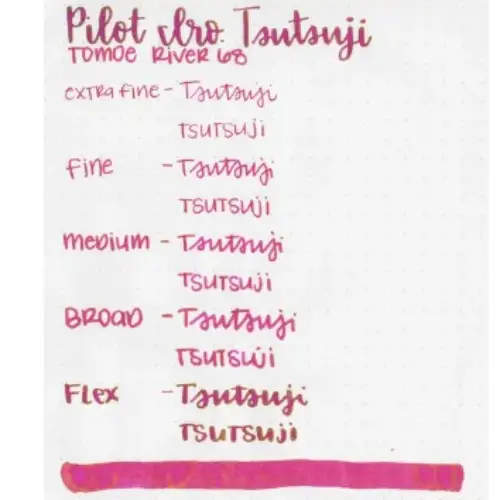 Pilot Iro. Tsutsuji
TOMOE RIVER 68
extra fine - Tsutsuji
TSUTSUJI
fine - Tsutsuji
TSUTSUJI
medium - Tsutsuji
TSUTSUJI
BROAD - Tsutsuji
TSUTSUJI
Flex - Tsutsuji
TSUTSUJI